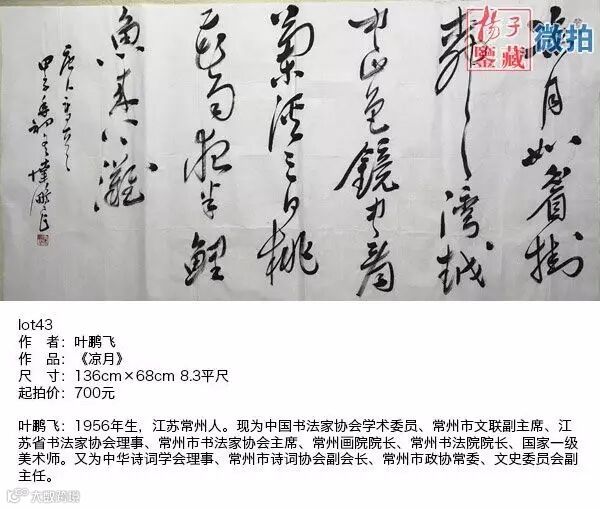 凉月如眉掛
柳湾越
中山色鏡中看
蘭溪三日桃
花雨夜半鯉
魚來上灘
唐人
甲子
杨子
鉴藏
微拍
lot43
作 者：叶鹏飞
作 品：《凉月》
尺 寸：136cm×68cm 8.3平尺
起拍价：700元
叶鹏飞：1956年生，江苏常州人。现为中国书法家协会学术委员、常州市文联副主席、江
苏省书法家协会理事、常州市书法家协会主席、常州画院院长、常州书法院院长、国家一级
美术师。又为中华诗词学会理事、常州市诗词协会副会长、常州市政协常委、文史委员会副
主任。